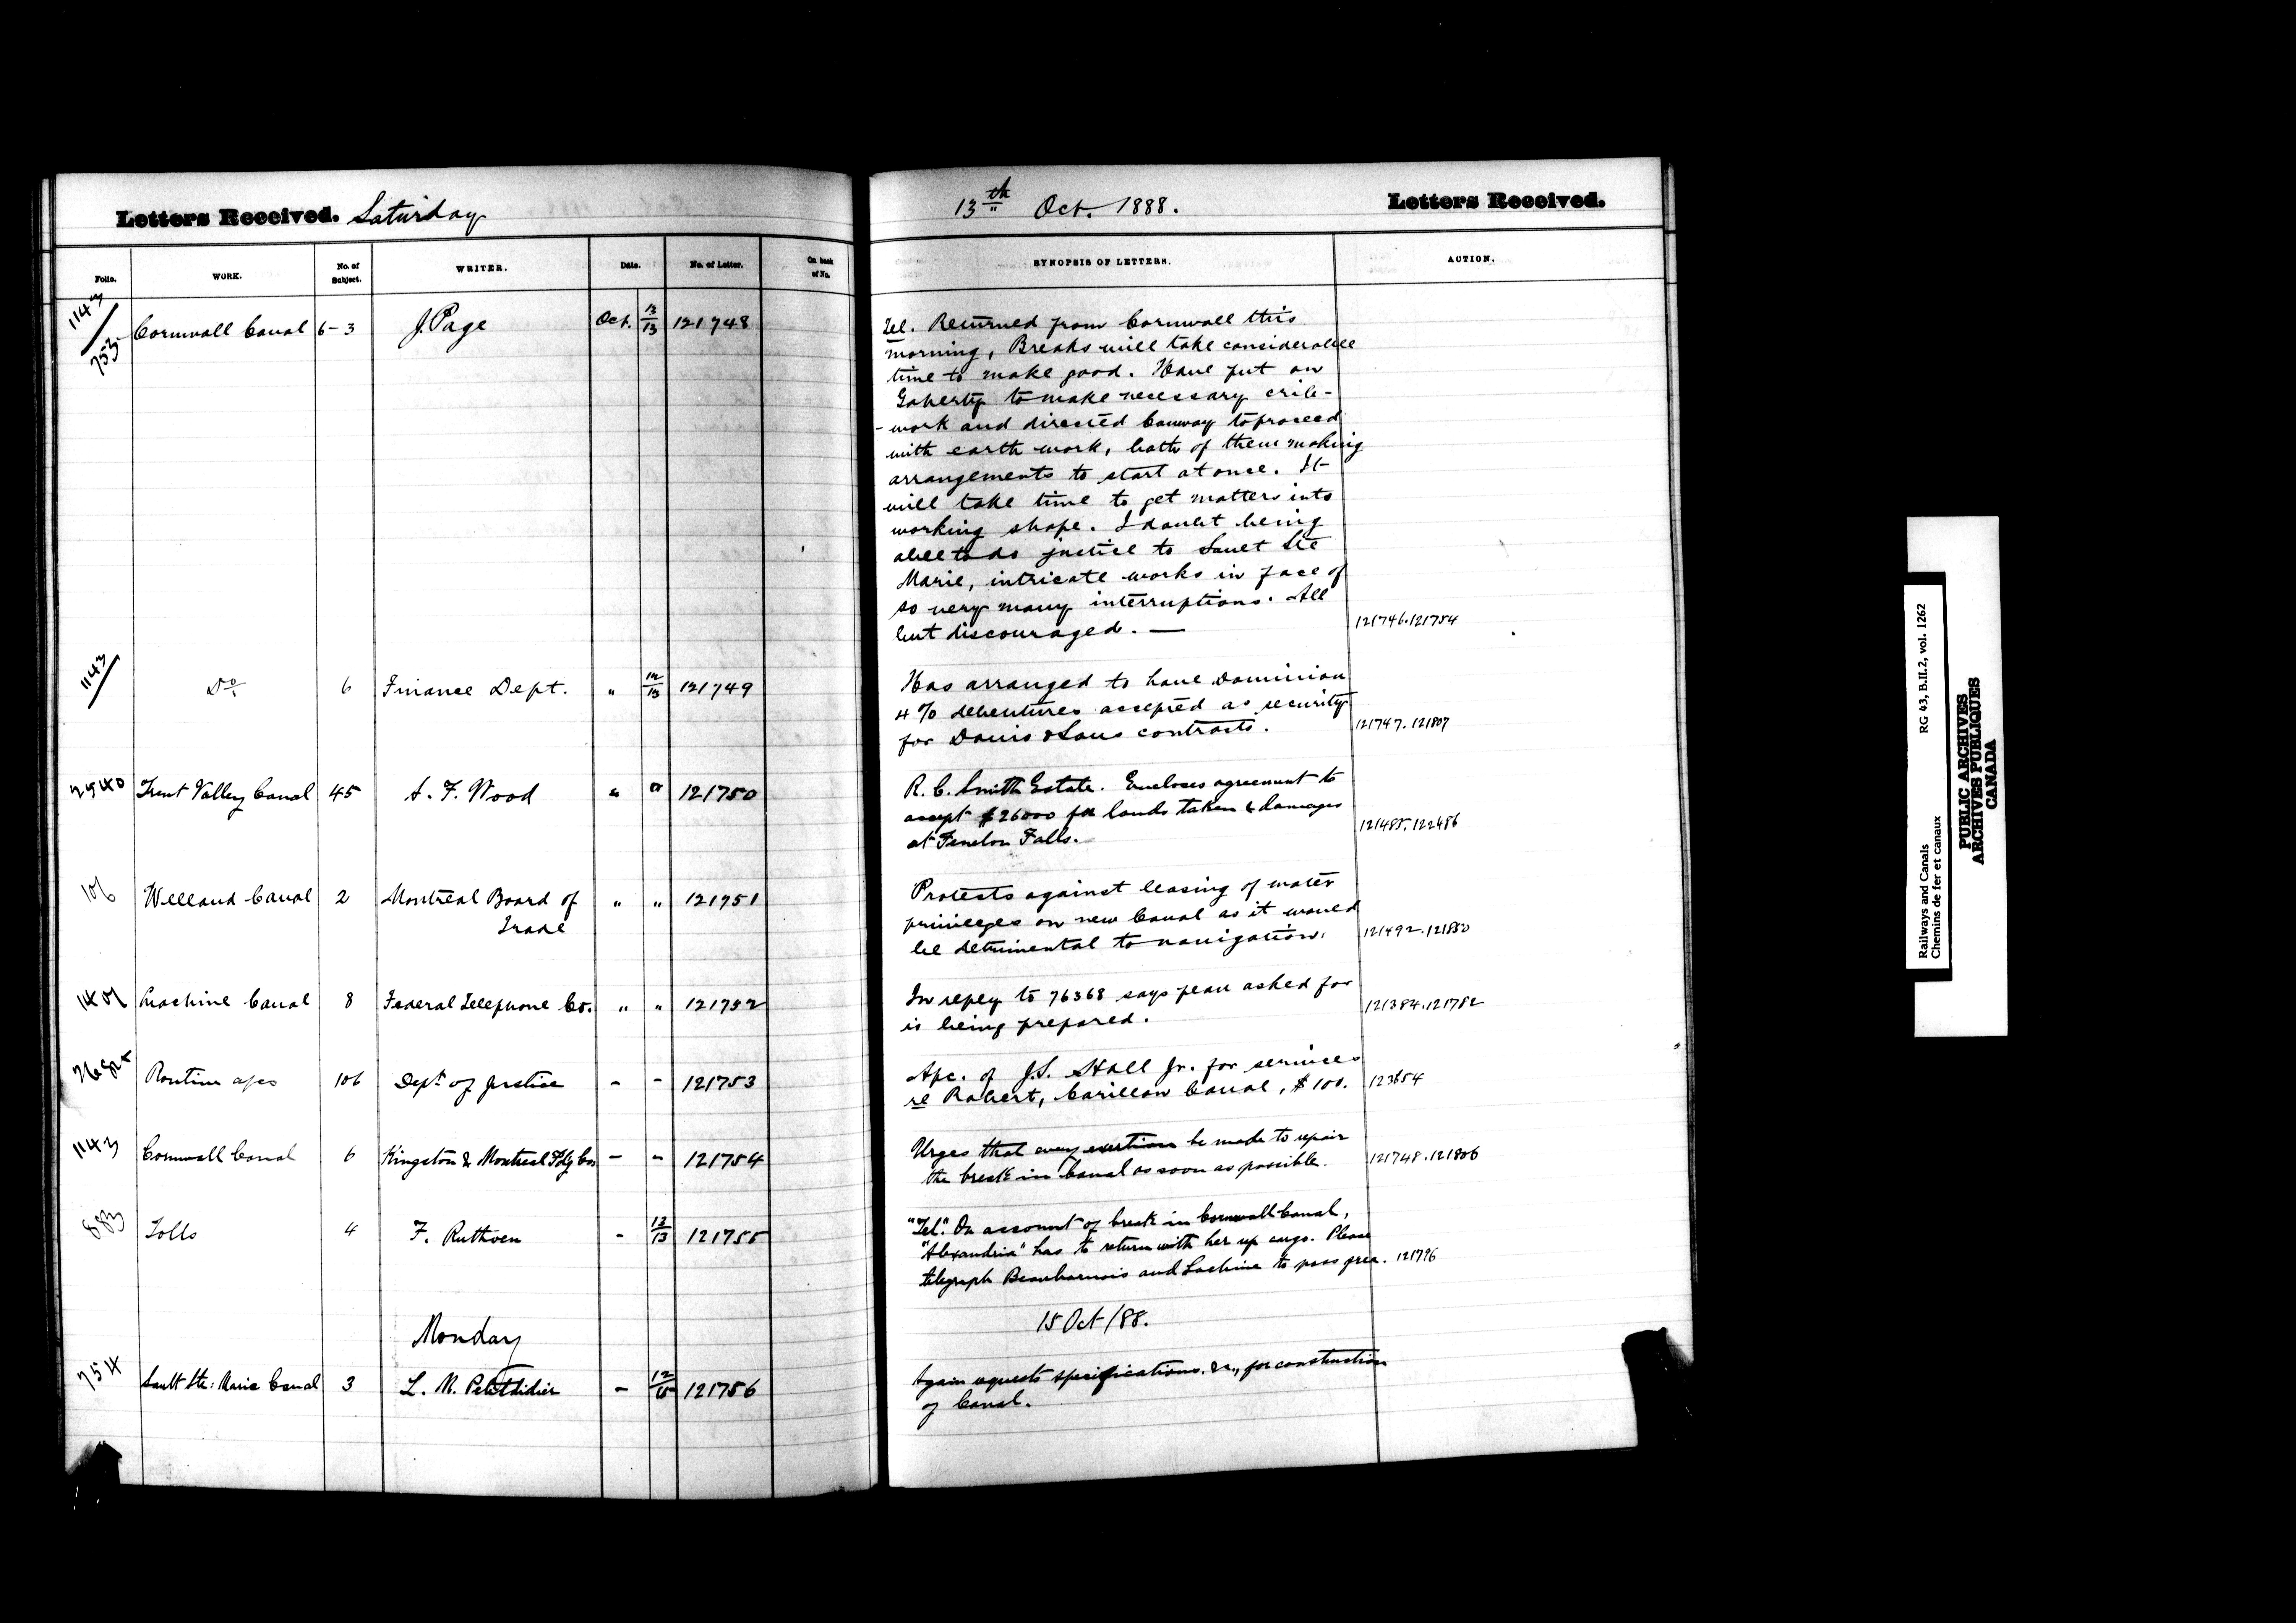 Letters Received. Saturday
13th Oct. 1888.
Letters Received.
Folio. WORK. No. of Subject. WRITER. Date. No. of Letter. On back of No.
SYNOPSIS OF LETTERS. ACTION.
1143/753 Cornwall Canal 6-3 J. Page Oct. 13/13 121748
Tel. Returned from Cornwall this
morning, Breaks will take considerable
time to make good. Have put on
Goherty to make necessary crib-
-work and directed Conway to proceed
with earth work, both of them making
arrangements to start at once. It
will take time to get matters into
working shape. I doubt being
able to do justice to Sault Ste
Marie, intricate works in face of
so very many interruptions. All
but discouraged. — 121746.121754
1143 Do 6 Finance Dept. " 12/13 121749
Has arranged to have Dominion
4% debentures accepted as security
for Davis & Sons contracts. 121747.121807
2540 Trent Valley Canal 45 A. F. Wood " " 121750
R. C. Smith Estate. Encloses agreement to
accept $26000 for lands taken & damages
at Fenelon Falls. 121485.122486
106 Welland Canal 2 Montreal Board of " " 121751
Trade
Protests against leasing of water
privileges on new Canal as it would
be detrimental to navigation. 121492.121850
1401 Lachine Canal 8 Federal Telephone Co. " " 121752
In reply to 76368 says plan asked for
is being prepared. 121384.121782
Routine a/cs 106 Dept of Justice - - 121753
Apc. of J.S. Hall Jr. for services
re Robert, Carillon Canal, $100. 123654
1143 Cornwall Canal 6 Kingston & Montreal Fdg Co. - - 121754
Urges that every exertion be made to repair
the break in Canal as soon as possible. 121748.121806
883 Tolls 4 F. Ruthven - 13/13 121755
"Tel." On account of break in Cornwall Canal,
"Alexandria" has to return with her up cargo. Please
telegraph Beauharnois and Lachine to pass free. 121796
Monday
15 Oct/88.
754 Sault Ste: Marie Canal 3 L. N. Petitdidier - 12/15 121756
Again requests specifications. &c., for construction
of Canal.
Railways and Canals RG 43, B.II.2, vol. 1262
Chemins de fer et canaux
PUBLIC ARCHIVES
ARCHIVES PUBLIQUES
CANADA